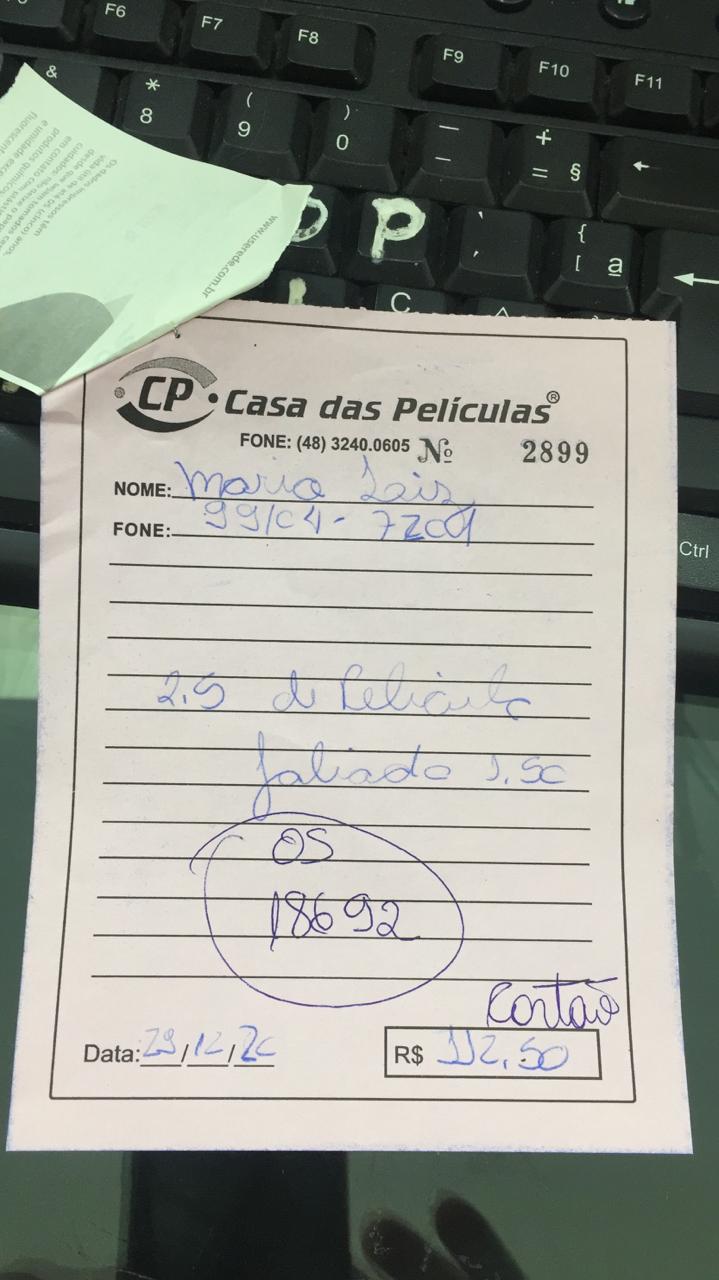 F6 F7 F8 F9 F10 F11
&
* 8
( 9
) 0
— –
+ = § 
P
{ [ ª
Ç
Ctrl
www.userede.com.br
CP Casa das Películas®
FONE: (48) 3240.0605 Nº 2899
NOME: Maria Luiz
FONE: 99104-7209
2,5 de Película
Jaliado 1.50
OS
18692
Cartão
Data: 29/12/20 R$ 112,50